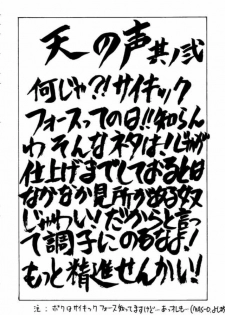 天の声 其ノ弐
何じゃ?!サイキック
フォースっての日!!知らん
わそんなネタは!じゃが
仕上げまでしておるとは
なかなか見所がある奴
じゃわい!だからと言っ
て調子にのるなよ!
もっと精進せんかい!!
注:ボクはサイキックフォース知ってますけど…あっすしも…